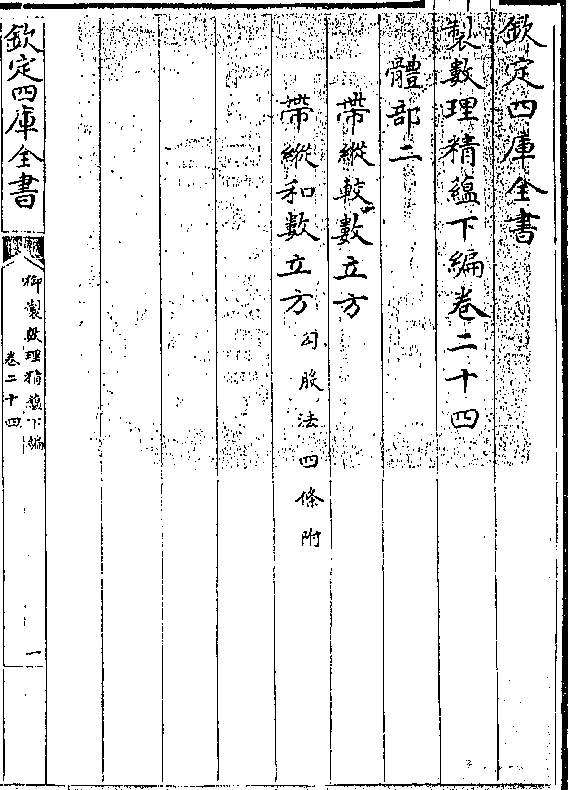 欽定四庫全書
製數理精蘊下編卷二十四
體部二
帶縱較數立方
帶縱和數立方 勾股法四條附
欽定四庫全書
御製數理精蘊下編
卷二十四
一